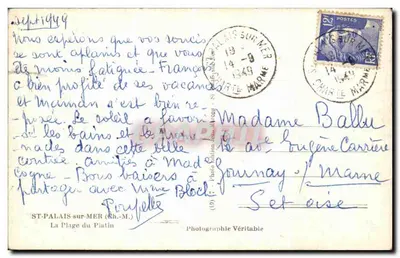 sept 1949
Nous espérons que vos soucis
se sont aplanis et que vous
êtes moins fatiguée. François
a bien profité de ses vacances
et Maman s'est bien re-
posée. Le soleil a favori-
sé les bains et les prome-
nades dans cette belle
contrée. amitiés à Made
Bons baisers à
partager avec Mme Bloch.
Poupette
ST-PALAIS-sur-MER (Ch.-M.)
La Plage du Platin
Photographie Véritable
ST PALAIS SUR MER
19
14 - 9
1949
CHARTE MARME
POSTES
Madame Ballu
Av. Eugène Carrière
Gournay s/ Marne
Set oise